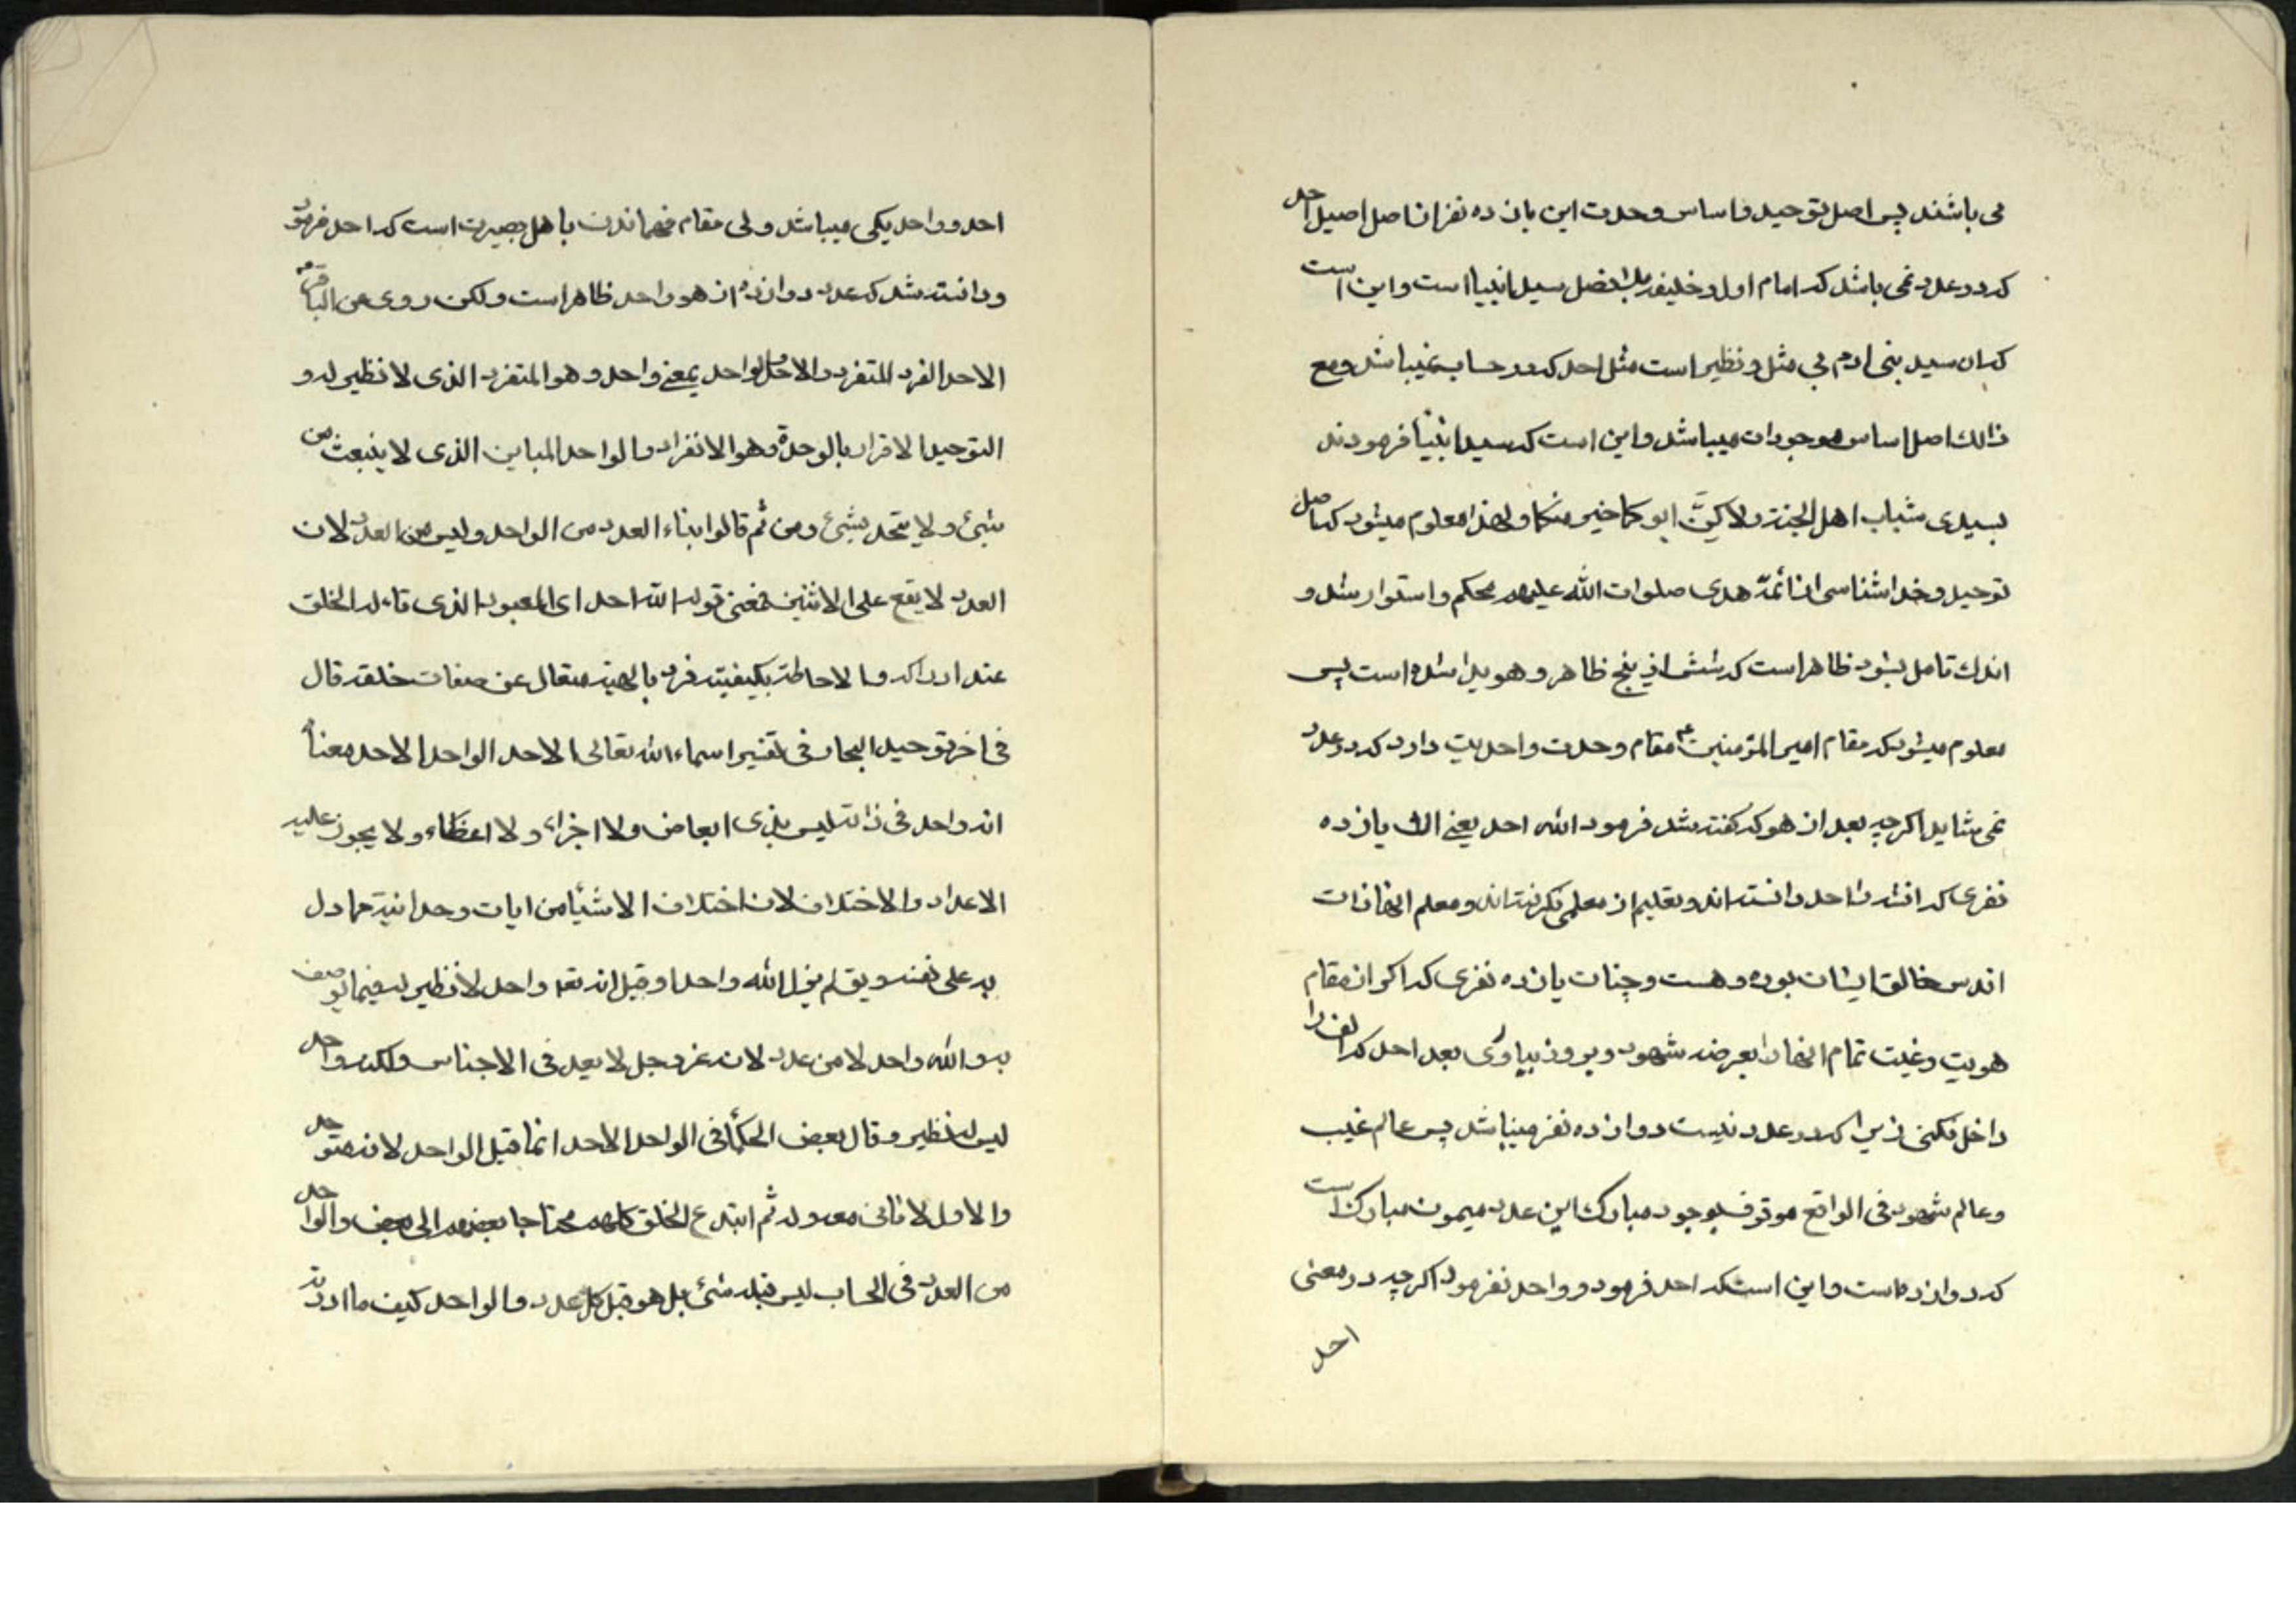 می باشند پس اصل توحید و اساس وحدت این یازده نفر از اصل اصیل احد
که در عدد نمی باشد که امام اول و خلیفه بلافصل سید انبیا است و این است
که ان سید بنی ادم بی مثل و نظیر است مثل احد که در حساب نمیباشد و مع
ذالك اصل اساس موجودات میباشد و این است که سید انبیا فرمودند
بسیدی شباب اهل الجنة ولاكنّ ابوكما خیر منكما و لهذا معلوم میشود که اصل
توحید و خدا شناسی از ائمّه هدی صلوات الله علیهم محکم و استوار شد و
اندك تامل بشود ظاهر است که شش از پنج ظاهر و هویدا شده است پس
معلوم میشود که مقام امیر المؤمنین ع مقام وحدت و احدیت دارد که در عدد
نمی شاید اکرچه بعد از هو که کفته شد فرمود الله احد یعنی الله یازده
نفری که انشد را احد دانسته اند و تعلیم از معلمی نکرفته اند و معلم انها ذات
اقدس خالق ایشان بوده و هست و چنان یازده نفری که اکر از مقام
هویت و غیب تمام انها را بعرضه شهود و بروز بیاوری بعد احد که الف را
داخل نکنی زیرا که در عدد نیست دوازده نفر میباشد پس عالم غیب
و عالم شهود فی الواقع موقوف بوجود مبارك این عدد میمون مبارك است
که دوازده است و این است که احد فرمود و واحد نفرمود اکرچه در معنی
احد
احد و واحد یکی میباشد ولی مقام فهماندن باهل بصیرت است که احد فرمود
و دانسته شد که عدد دوازده از هو واحد ظاهر است ولکن روی عن الباقر ع
الاحد الفرد المتفرد والاحد والواحد بمعنی واحد وهو المتفرد الذی لا نظیر له و
التوحید الاقرار بالوحدة وهو الانفراد والواحد المباین الذی لا ینبعث من
شیئ ولا یتحد بشیئ ومن ثم قالوا بناء العدد من الواحد ولیس من العدد لان
العدد لا یقع علی الاثنین فمعنی قوله الله احد ای المعبود الذی تاله الخلق
عند ادراکه والاحاطة بکیفیته فرد بالهیته متعال عن صفات خلقه قال
فی اخر توحید البحار فی تفسیر اسماء الله تعالی الاحد الواحد الاحد معناه
انه واحد فی ذاته لیس بذی ابعاض ولا اجزاء ولا اعضاء ولا یجوز علیه
الاعداد والاختلاف لان اختلاف الاشیأ من ایات وحدانیته مما دل
به علی نفسه ویقال لم یزل الله واحدا وقیل انه تعه واحد لا نظیر له فیما یوصف
به والله واحد لا من عدد لانه عز وجل لا یعد فی الاجناس ولکنه واحد
لیس له نظیر وقال بعض الحکمأ فی الواحد الاحد انما قیل الواحد لانه متوحد
والاول لا ثانی معه ولد ثم ابتدع الخلق کلهم محتاجا بعضهم الی بعض والواحد
من العدد فی الحساب لیس قبله شئ بل هو قبل کل عدد والواحد کیف ما اردته